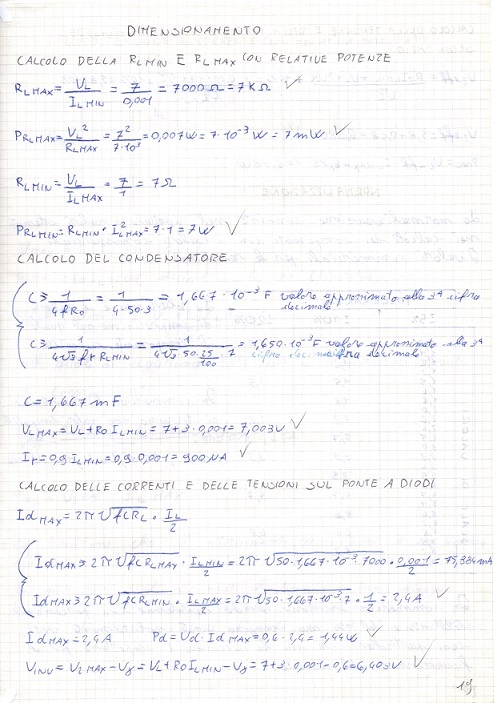 DIMENSIONAMENTO
CALCOLO DELLA RLMIN E RLMAX CON RELATIVE POTENZE
RLMAX = VL/ILMIN = 7/0,001 = 7000 Ω = 7KΩ ✓
PRLMAX = VL²/RLMAX = 7²/7·10³ = 0,007W = 7·10⁻³ W = 7mW ✓
RLMIN = VL/ILMAX = 7/1 = 7Ω
PRLMIN = RLMIN · I²LMAX = 7·1 = 7W ✓
CALCOLO DEL CONDENSATORE
C ≥ 1/4fR0 = 1/4·50·3 = 1,667·10⁻³ F valore approssimato alla 3ª cifra
decimale
C ≥ 1/4√3 fr RLMIN = 1/4√3·50·25/100·7 = 1,650·10⁻³ F valore approssimato alla 3ª
cifra decimale
C = 1,667 mF
VLMAX = VL + R0 ILMIN = 7+3·0,001 = 7,003V ✓
Ir = 0,9 ILMIN = 0,9·0,001 = 900µA ✓
CALCOLO DELLE CORRENTI E DELLE TENSIONI SUL PONTE A DIODI
IdMAX = 2π√fCRL · IL/2
IdMAX ≥ 2π√fCRLMAX · ILMIN/2 = 2π√50·1,667·10⁻³·7000 · 0,001/2 = 75,384mA
IdMAX ≥ 2π√fCRLMIN · ILMAX/2 = 2π√50·1,667·10⁻³·7 · 1/2 = 2,4A ✓
IdMAX = 2,4A Pd = Vd · IdMAX = 0,6·2,4 = 1,44W ✓
VINV = VLMAX - Vγ = VL + R0 ILMIN - Vγ = 7+3·0,001-0,6 = 6,403V ✓
19